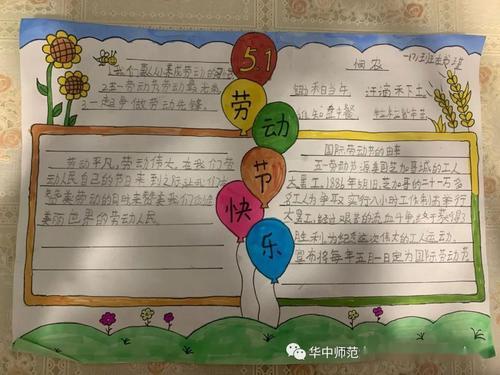 5.1
劳
动
节
快
乐
1.我们要从小养成劳动的习惯
2.五一劳动为劳动最光荣
一起争做劳动先锋
悯农
锄禾日当午 汗滴禾下土
谁知盘中餐 粒粒皆辛苦
劳动平凡,劳动伟大,在我们劳
动人民自己的节日来到之际让我们
赞美劳动的
丽世界的劳动人民
国际劳动节的由来
五一劳动节源美国芝加哥城的工人
大罢工,1886年5月1日,芝加哥的二十一万多
名工人为争取实行八小时工作制而举行
大罢工,经过艰苦的流血斗争,终于获得了
胜利,为纪念这次伟大的工人运动,
宣布将每年五月一日定为国际劳动节
华中师范